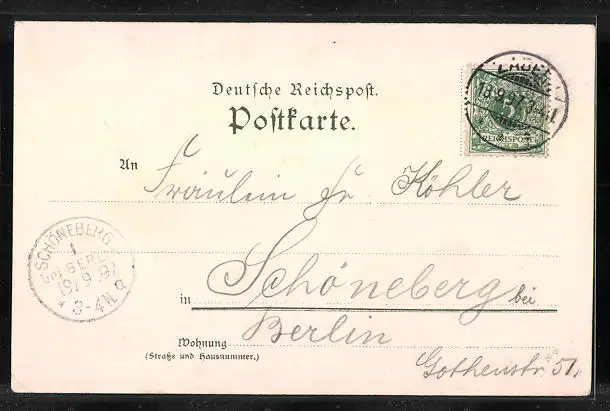 Deutsche Reichspost.
Postkarte.
18.9.97.
5
REICHSPOST
An Fräulein Fr Köhler
SCHÖNEBERG
1
bei BERLIN
19/9 97
* 3-4N a
in Schöneberg bei
Berlin
Wohnung
(Straße und Hausnummer.)
Gothenstr. 51.